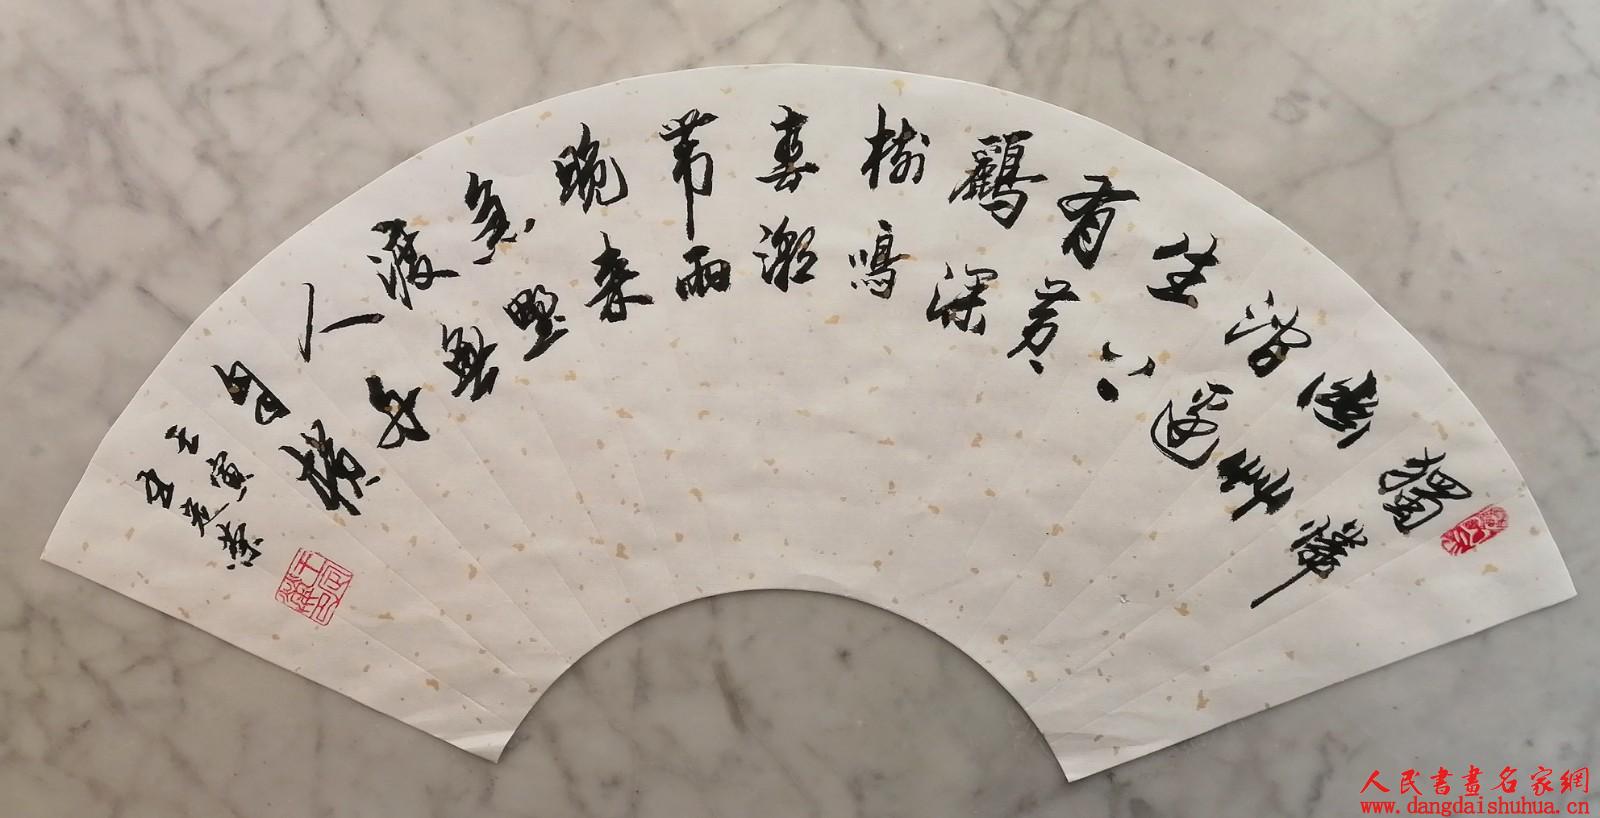 獨憐
幽草
澗邊
生上
有黃
鸝深
樹鳴
春潮
帶雨
晚來
急野
渡無
人舟
自橫
壬寅
人民書畫名家網
www.dangdaishuhua.cn